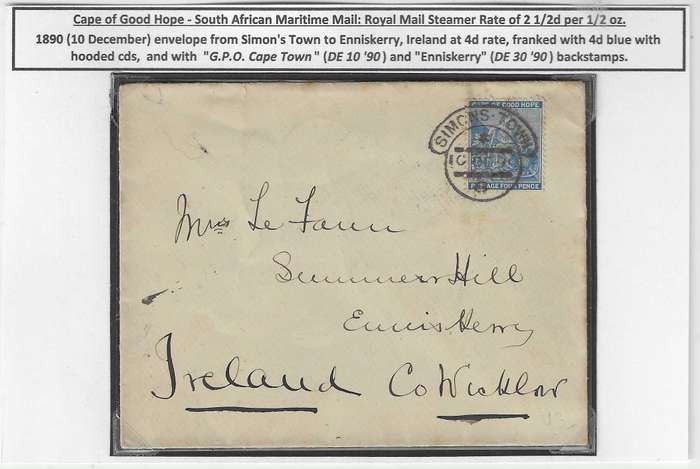 Cape of Good Hope - South African Maritime Mail: Royal Mail Steamer Rate of 2 1/2d per 1/2 oz.
1890 (10 December) envelope from Simon's Town to Enniskerry, Ireland at 4d rate, franked with 4d blue with
hooded cds, and with "G.P.O. Cape Town" (DE 10 '90) and "Enniskerry" (DE 30 '90) backstamps.
OF GOOD HOPE
SIMONS-TOWN
POSTAGE FOUR PENCE
Mrs Le Fanu
Summer Hill
Enniskerry
Ireland Co Wicklow